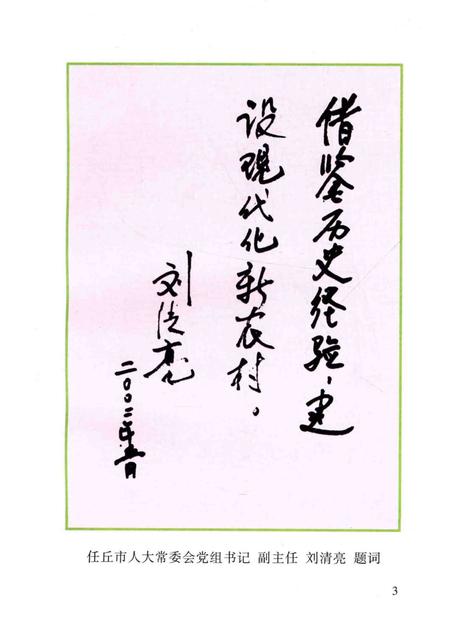 借鉴历史经验，建
设现代化新农村。
刘清亮
二〇〇二年五月
任丘市人大常委会党组书记 副主任 刘清亮 题词
3